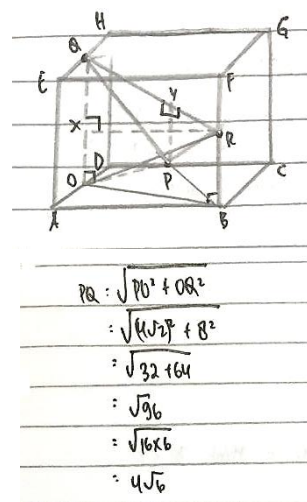 H G
Q
E F
Y
X R
D
O P C
A B
PQ : √PO² + OQ²
: √(4√2)² + 8²
: √32 + 64
: √96
: √16×6
: 4√6